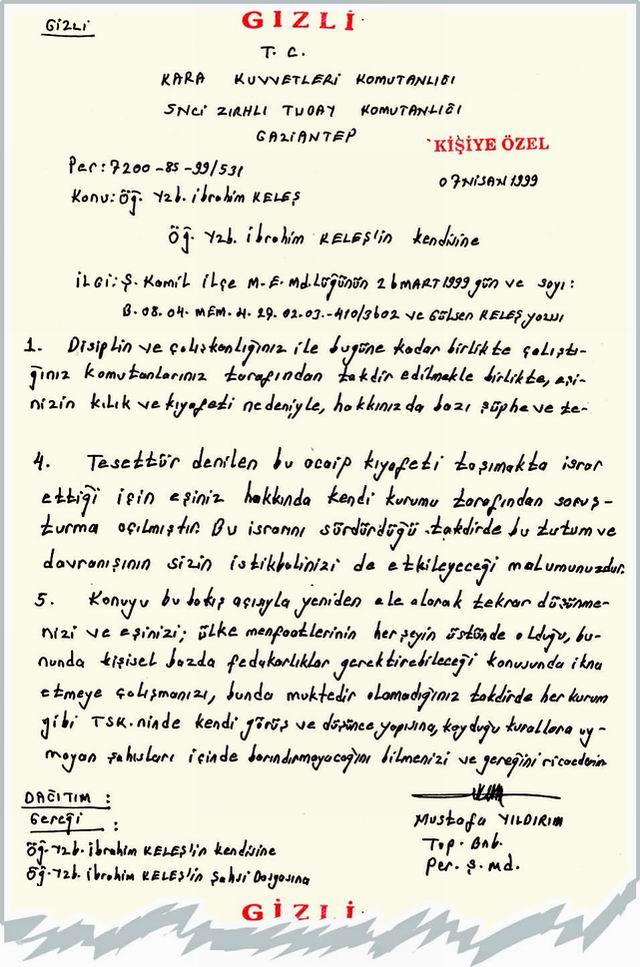 GİZLİ
GIZLI
T. C.
KARA KUVVETLERİ KOMUTANLIĞI
5NCİ ZIRHLI TUGAY KOMUTANLIĞI
GAZİANTEP
KİŞİYE ÖZEL
Per: 7200-85-99/531
07 NİSAN 1999
Konu: Öğ. Yzb. İbrahim KELEŞ
Öğ. Yzb. İbrahim KELEŞ'in kendisine
İLGİ: Ş. Kamil ilçe M.E. Md.Lüğünün 26 MART 1999 gün ve sayı:
B.08.04.MEM.4.27.02.03.-410/3602 ve Gülsen KELEŞ, yazısı
1. Disiplin ve çalışkanlığınız ile bugüne kadar birlikte çalıştı-
ğınız komutanlarınız tarafından takdir edilmekle birlikte, eşi-
nizin kılık ve kıyafeti nedeniyle, hakkınızda bazı şüphe ve te-
4. Tesettür denilen bu acaip kıyafeti taşımakta israr
ettiği için eşiniz hakkında kendi kurumu tarafından soruş-
turma açılmıştır. Bu israrını sürdürdüğü takdirde bu tutum ve
davranışının sizin istikbalinizi de etkileyeceği malumunuzdur.
5. Konuyu bu bakış açısıyla yeniden ele alarak tekrar düşünme-
nizi ve eşinizi; ülke menfaatlerinin her şeyin üstünde olduğu, bu-
nunda kişisel bazda fedakarlıklar gerektirebileceği konusunda ikna
etmeye çalışmanızı, bunda muktedir olamadığınız takdirde her kurum
gibi TSK.ninde kendi görüş ve düşünce yapısına, koyduğu kurallara uy-
mayan şahısları içinde barındırmayacağını bilmenizi ve gereğini rica ederim
DAĞITIM :
Gereği :
Öğ. Yzb. İbrahim KELEŞ'in kendisine
Öğ. Yzb. İbrahim KELEŞ'in Şahsi Dosyasına
Mustafa YILDIRIM
Top. Bnb.
Per. Ş. Md.
GİZLİ